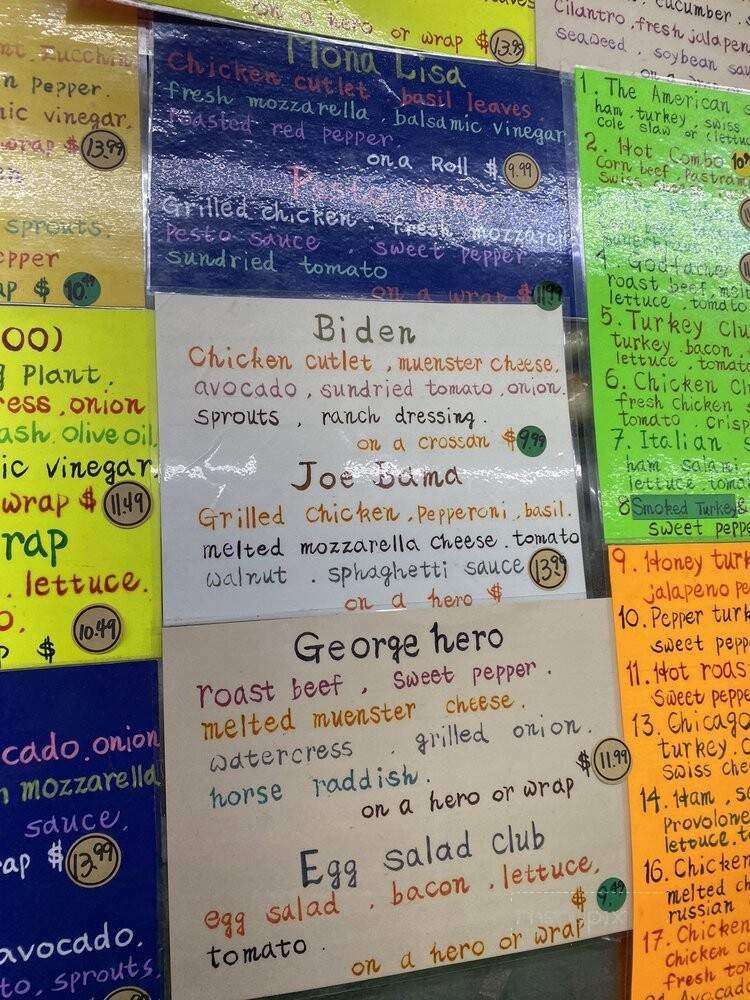 on a hero or wrap $ 13.99
cucumber.
Cilantro, fresh
seaweed, soybean
nt. Zucchin
n pepper.
mic vinegar.
wrap $ 13.99
sprouts.
epper
ap $ 10.49
Mona Lisa
Chicken cutlet basil leaves.
fresh mozzarella, balsamic vinegar
roasted red pepper
on a Roll $ 9.99
Pesto Wrap
Grilled chicken. fresh mozzarella
Pesto sauce. sweet pepper
sundried tomato
on a wrap $ 11.99
OO)
g Plant.
ress, onion
ash. Olive oil.
ic vinegar
wrap $ 11.49
rap
. lettuce.
o.
$ 10.49
Biden
Chicken cutlet, muenster cheese,
avocado, sundried tomato, onion.
sprouts, ranch dressing.
on a crossan $ 9.99
Joe Bama
Grilled Chicken, Pepperoni, basil.
melted mozzarella cheese. tomato
walnut. sphaghetti sauce 13.99
on a hero $
cado. onion
h mozzarella
sauce.
ap $ 13.99
avocado.
to, sprouts.
George hero
roast beef, sweet pepper.
melted muenster cheese.
watercress. grilled onion.
horse raddish. $ 11.99
on a hero or wrap
Egg salad club
egg salad, bacon, lettuce,
tomato. $ 9.49
on a hero or wrap
1. The American
ham, turkey, swiss
cole slaw or
2. Hot Combo
Corn beef, Pastram
4. Godfather
roast beef, mel
lettuce, tomato
5. Turkey Clu
turkey, bacon,
lettuce, tomat
6. Chicken Cl
fresh chicken
tomato. Crisp
7. Italian S
ham salami
lettuce toma
8 Smoked Turkey &
sweet peppe
9. Honey turk
jalapeno pe
10. Pepper turk
sweet pepp
11. Hot roas
Sweet peppe
13. Chicago
turkey. C
Swiss che
14. Ham, sa
Provolone
lettuce. t
16. Chicken
melted ch
russian
17. Chicken
chicken c
fresh to
Avocado